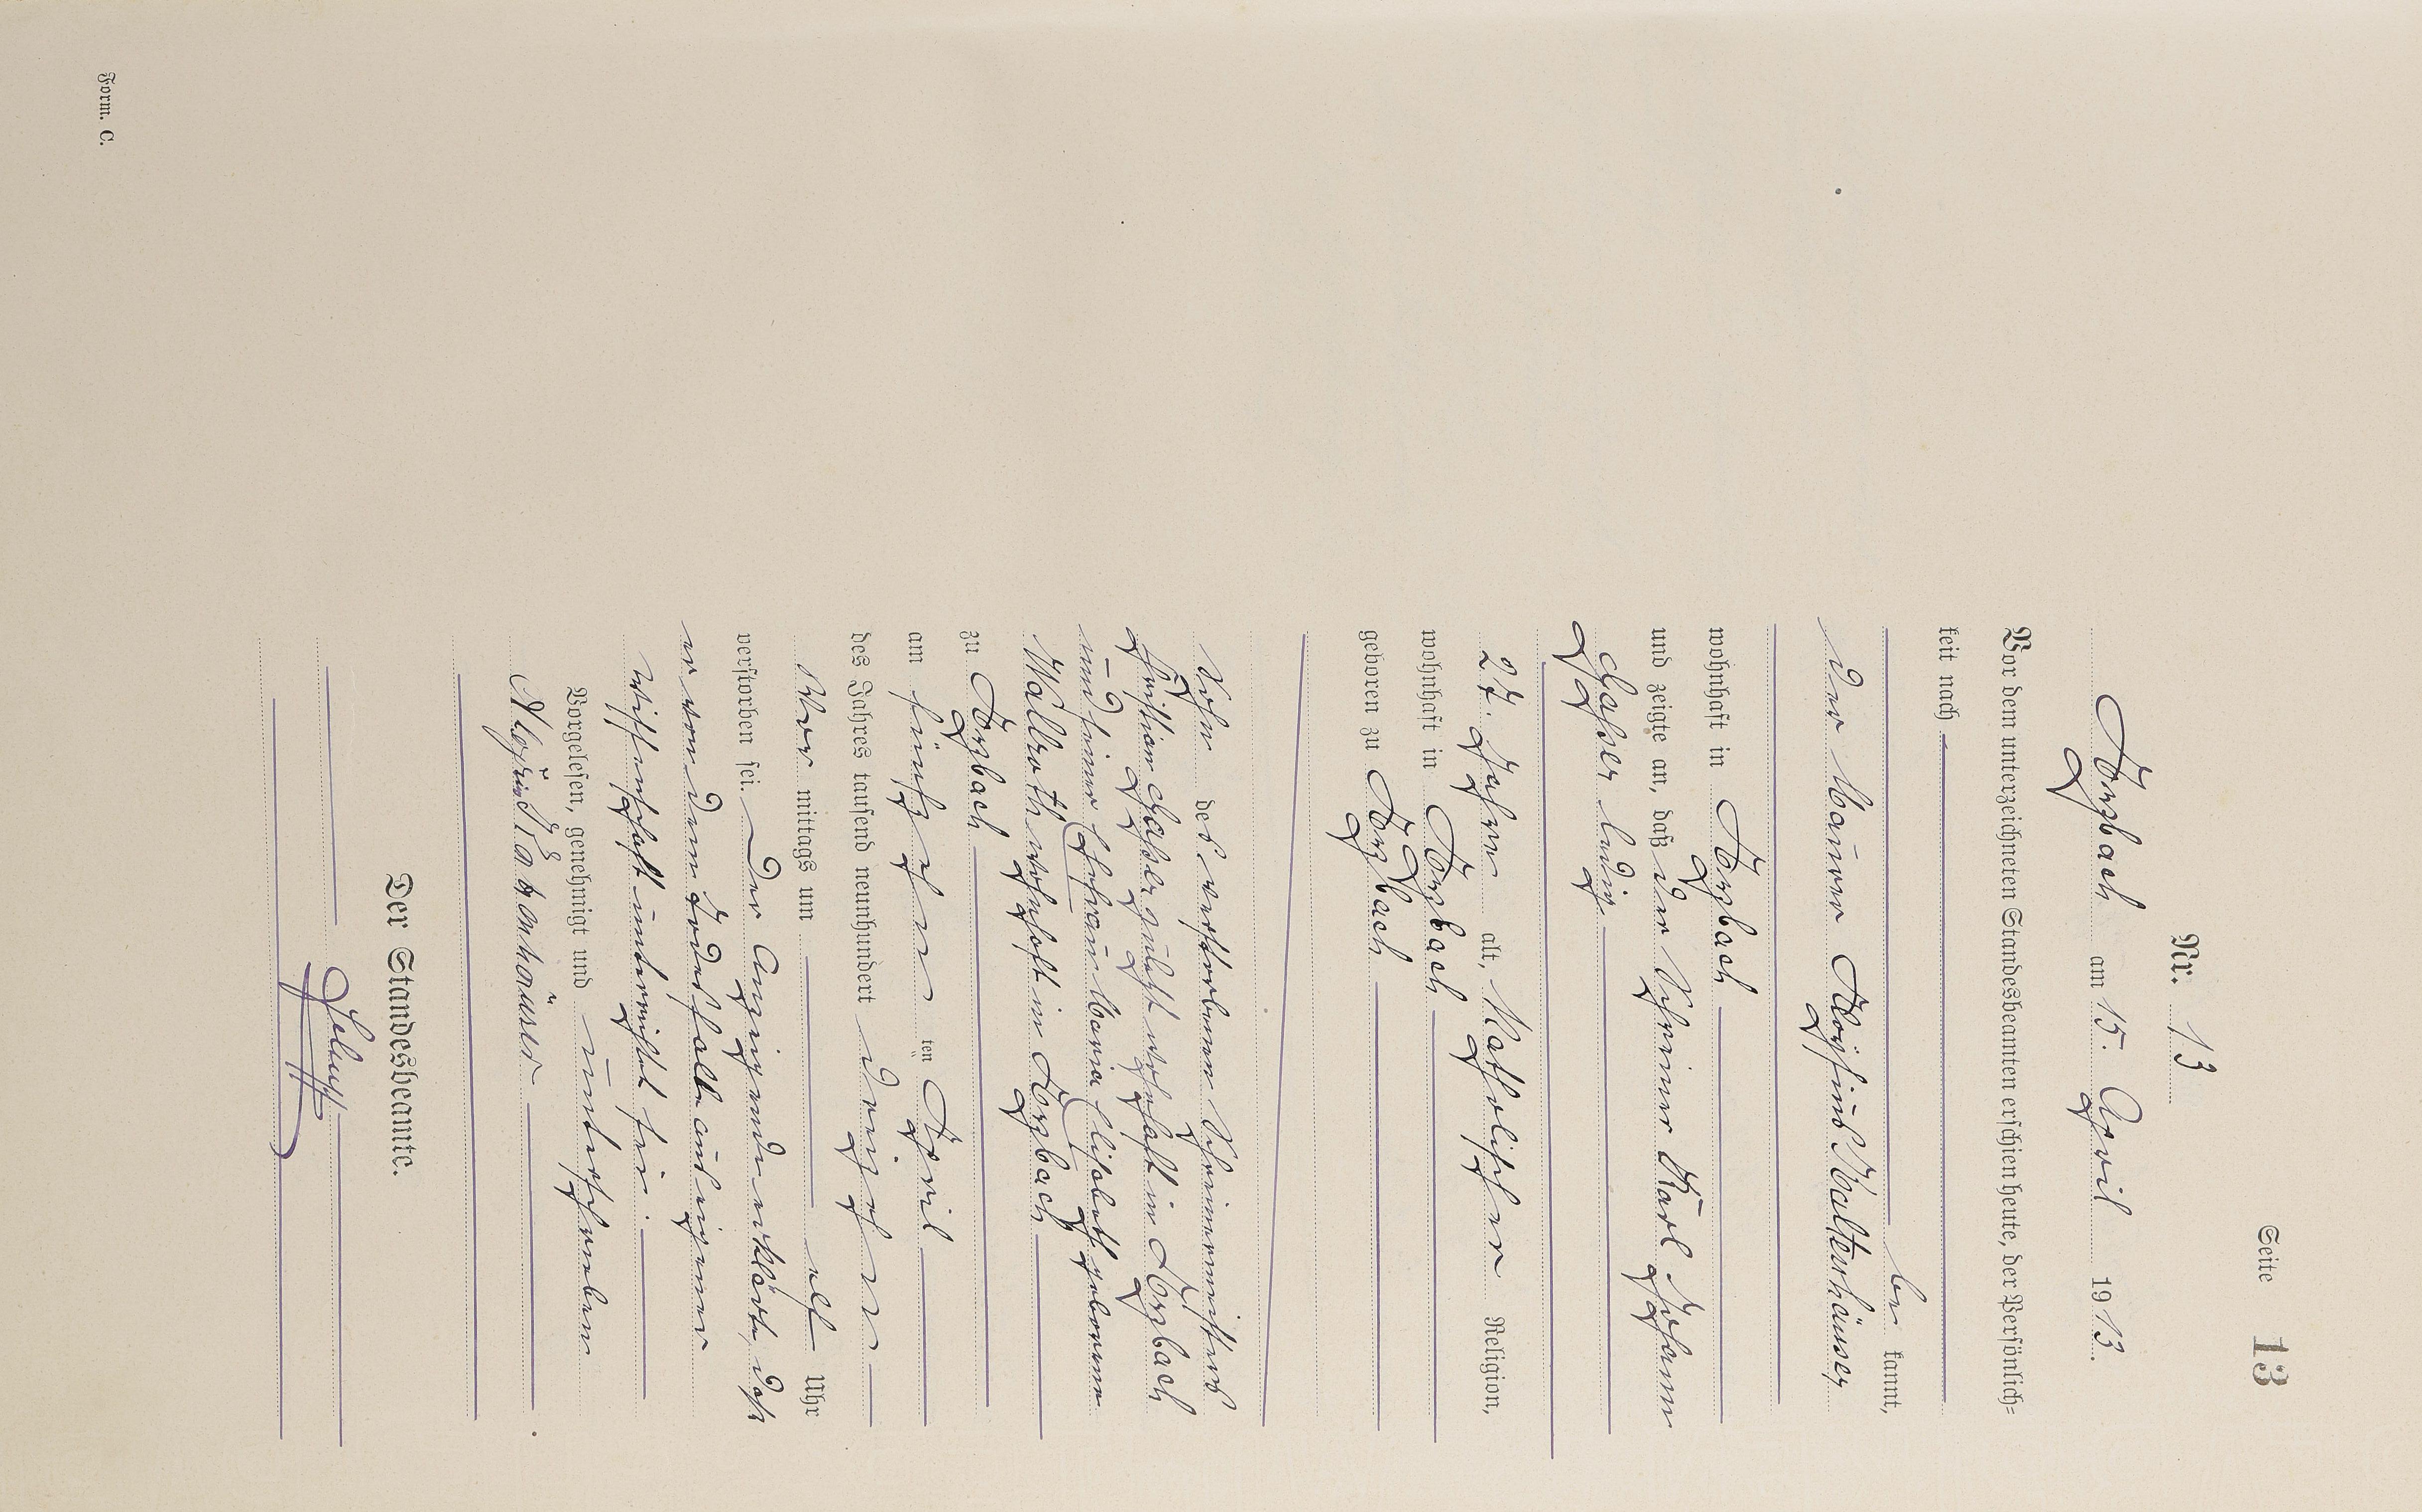 Seite 13
Nr. 13
Arzbach am 15. April 1913.
Vor dem unterzeichneten Standesbeamten erschien heute, der Persönlich=
keit nach
be kannt,
der Maurer Aloisius Malterhäuser
wohnhaft in Arzbach
und zeigte an, daß der Schreiner Karl Johann
ledig
27. Jahre alt, Katholischer Religion,
wohnhaft in Arzbach
geboren zu Arzbach
Sohn des verstorbenen Schreinermeisters
Christian zuletzt wohnhaft in Arzbach
und seiner Ehefrau Maria Elisabeth geborene
Walbroth wohnhaft in Arzbach
zu Arzbach
am fünfzehn ten April
des Jahres tausend neunhundert dreizehn
Vor mittags um elf Uhr
verstorben sei. Der Anzeigende erklärte, daß
er von dem Todesfalle aus eigener
Wissenschaft unterrichtet sei.
Vorgelesen, genehmigt und unterschrieben
Der Standesbeamte.
Form. C.